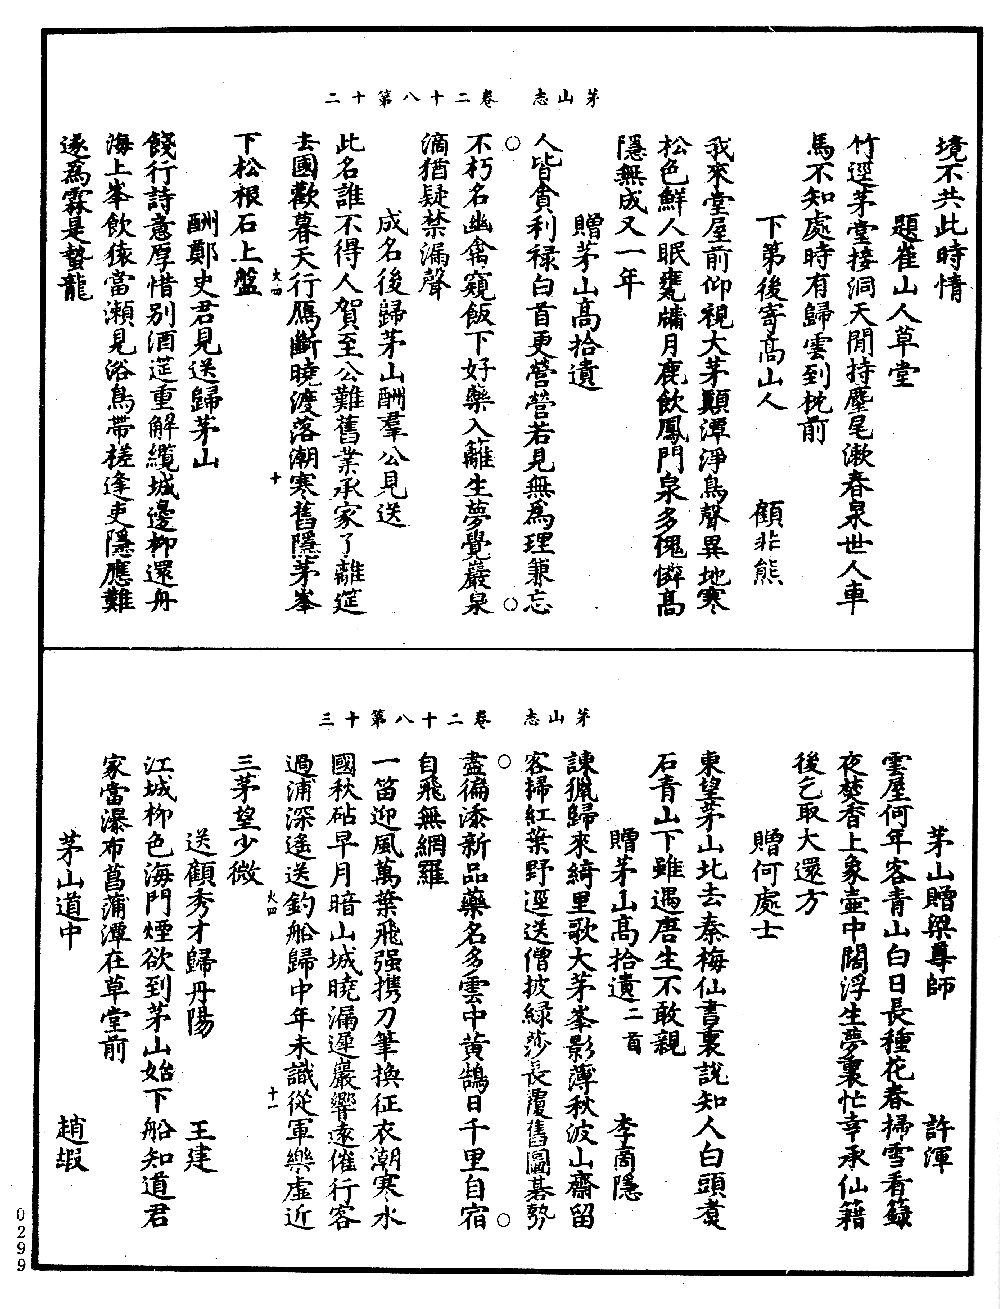 茅山志　卷二十八第十二
境不共此時情
題崔山人草堂
竹逕茅堂接洞天閒持麈尾漱春泉世人車
馬不知處時有歸雲到枕前
下第後寄高山人　顧非熊
我來堂屋前仰視大茅顚潭淨鳥聲異地寒
松色鮮人眠甕牖月鹿飲鳳門泉多愧憐高
隱無成又一年
贈茅山高拾遺
人皆貪利祿白首更營營若見無爲理兼忘
不朽名幽禽窺飯下好藥入籬生夢覺巖泉
滴猶疑禁漏聲
成名後歸茅山酬羣公見送
此名誰不得人賀至公難舊業承家了離筵
去國歡暮天行鴈斷曉渡落潮寒舊隱茅峯
下松根石上盤
火四
十
酬鄭史君見送歸茅山
餞行詩意厚惜別酒筵重解纜城邊柳還舟
海上峯飲猨當瀨見浴鳥帶槎逢吏隱應難
遂爲霖是蟄龍
茅山志　卷二十八第十三
茅山贈梁尊師　許渾
雲屋何年客青山白日長種花春掃雪看籙
夜焚香上象壺中闊浮生夢裏忙幸承仙籍
後乞取大還方
贈何處士
東望茅山北去秦梅仙書裏說知人白頭煑
石青山下雖遇唐生不敢親
贈茅山高拾遺二首　李商隱
諫獵歸來綺里歌大茅峯影薄秋波山齋留
客掃紅葉野逕送僧披綠莎長覆舊圖棊勢
盡徧添新品藥名多雲中黃鵠日千里自宿
自飛無網羅
一笛迎風萬葉飛强攜刀筆換征衣潮寒水
國秋砧早月暗山城曉漏遲巖響遠催行客
過浦深遙送釣船歸中年未識從軍樂虛近
三茅望少微
火四
十一
送顧秀才歸丹陽　王建
江城柳色海門煙欲到茅山始下船知道君
家當瀑布菖蒲潭在草堂前
茅山道中　趙嘏
0299